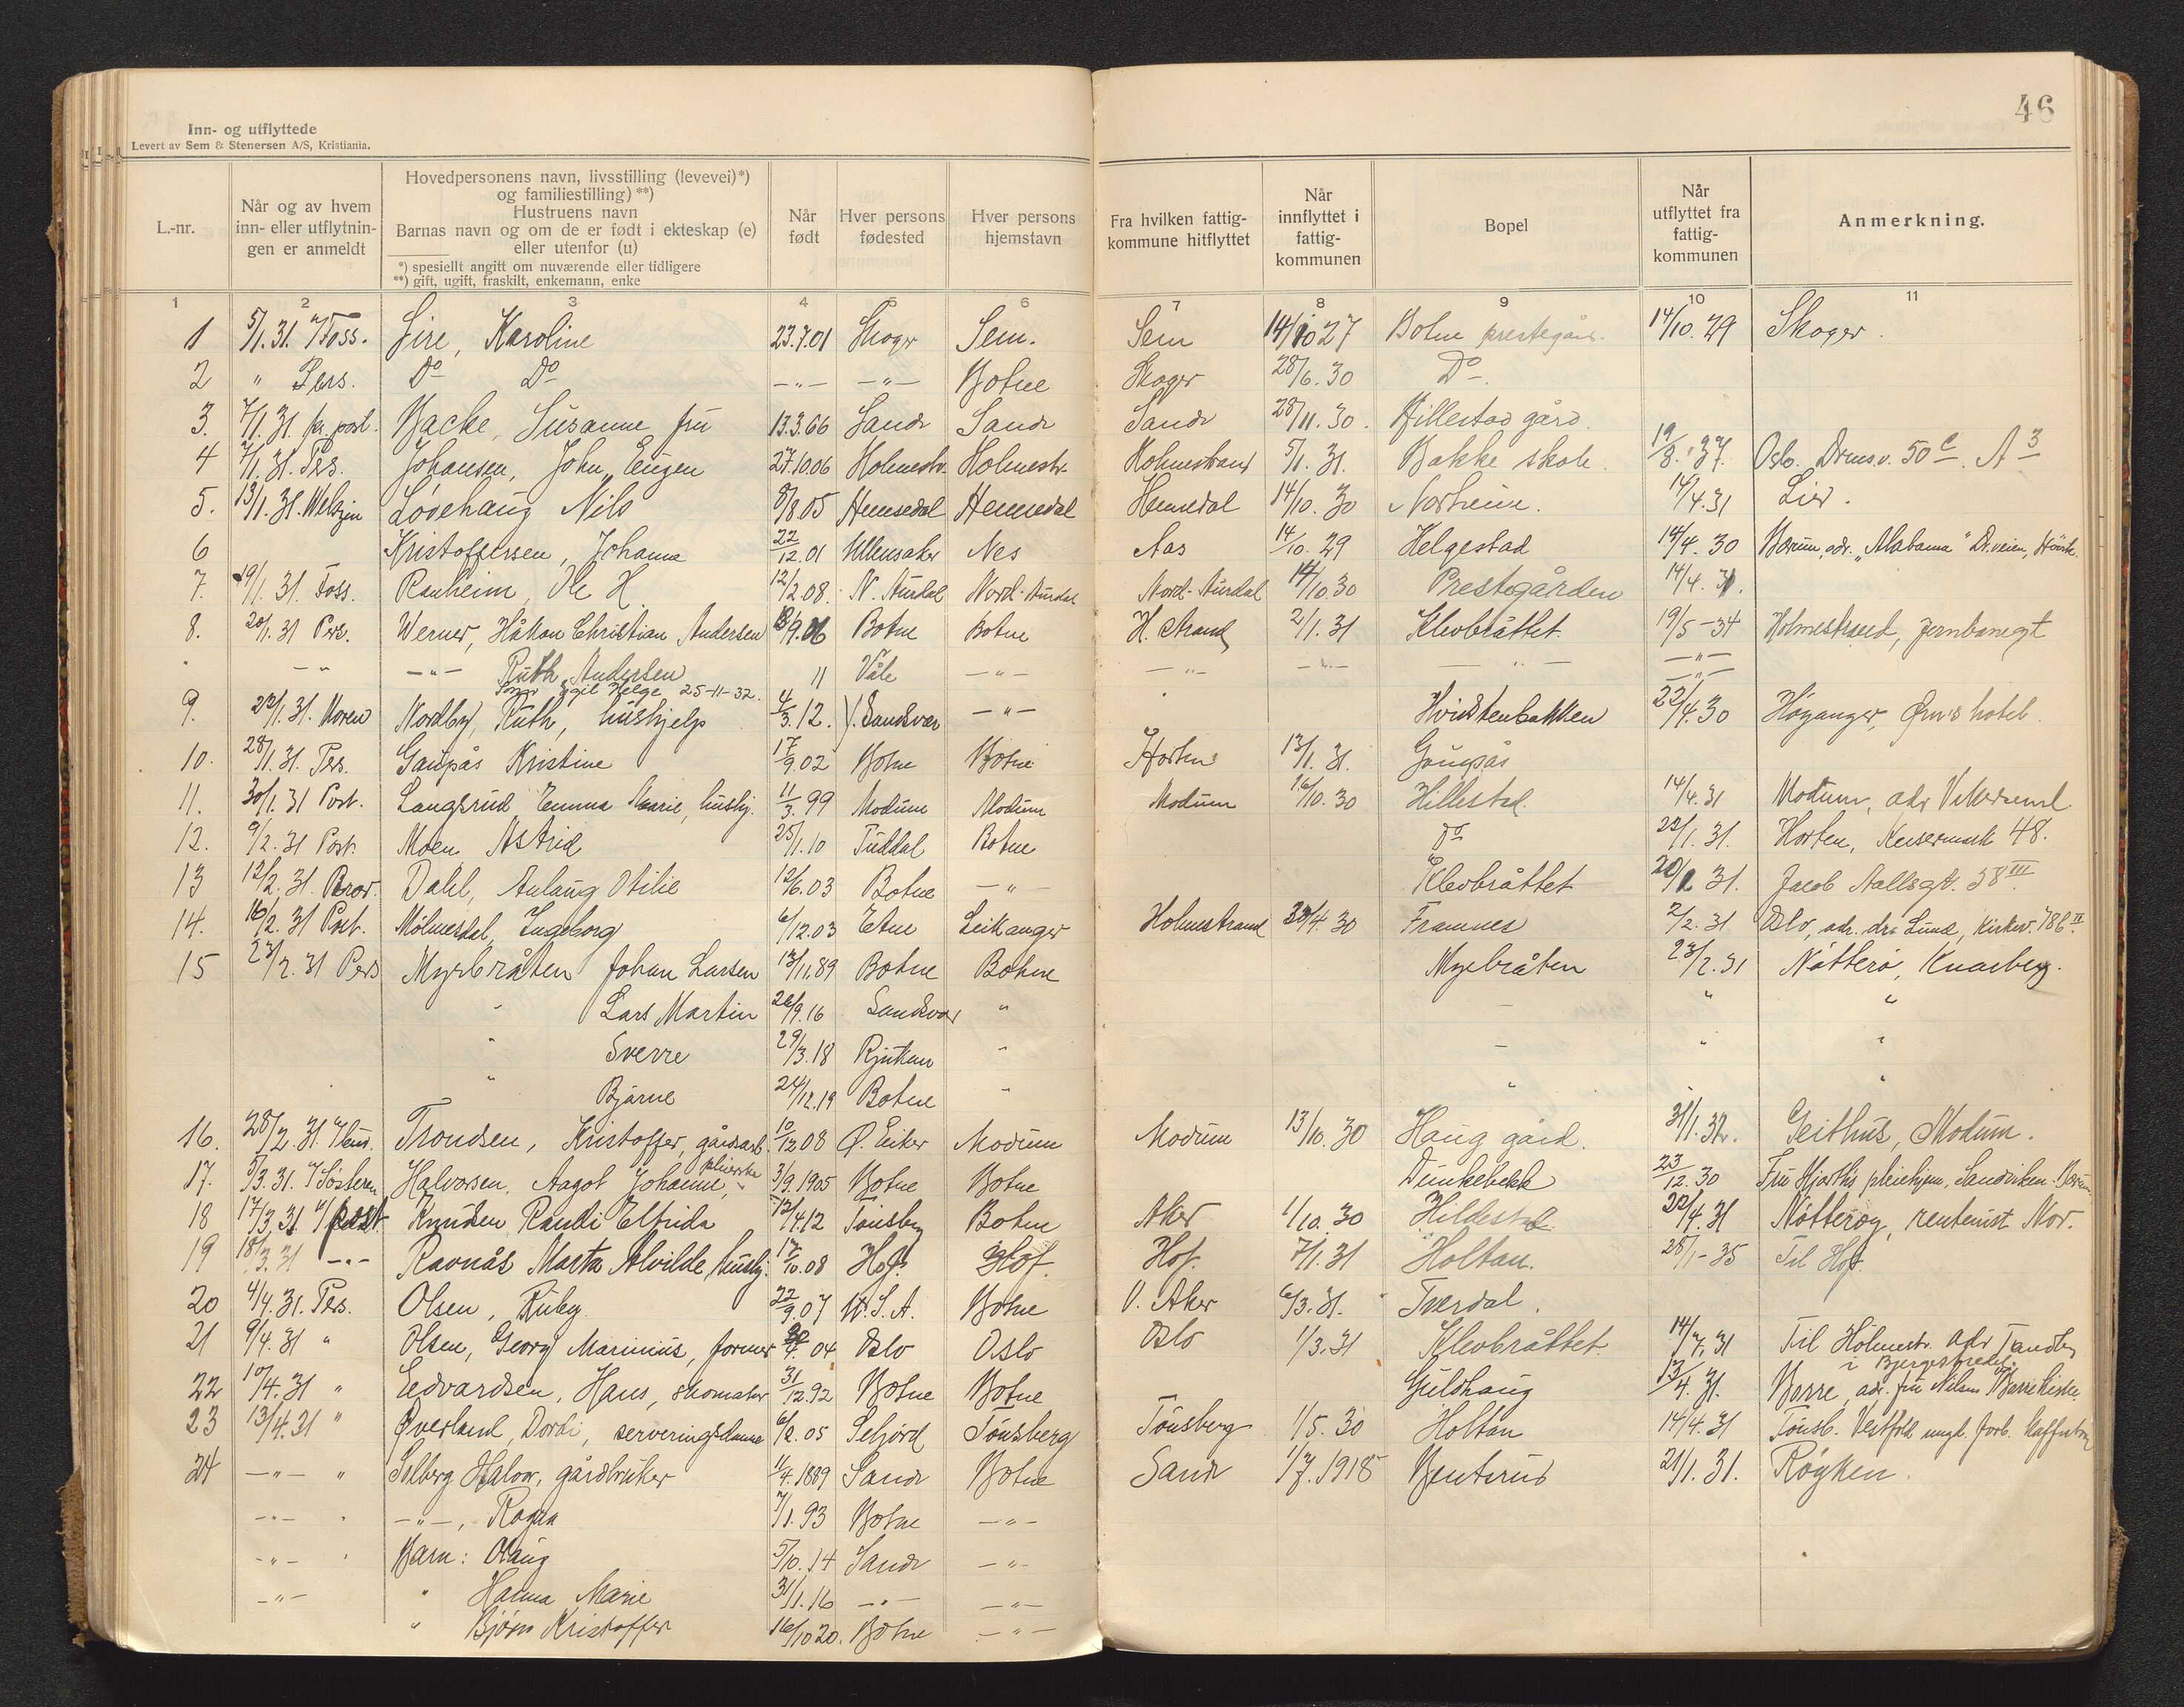 46
Inn- og utflyttede
Levert av Sem & Stenersen A/S, Kristiania.
L.-nr.
Når og av hvem inn- eller utflytnin- gen er anmeldt
Hovedpersonens navn, livsstilling (levevei)*)
og familiestilling)**)
Hustruens navn
Barnas navn og om de er født i ekteskap (e)
eller utenfor (u)
*) spesiellt angitt om nuværende eller tidligere
**) gift, ugift, fraskilt, enkemann, enke
Når født
Hver persons fødested
Hver persons hjemstavn
Fra hvilken fattig- kommune hitflyttet
Når innflyttet i fattig- kommunen
Bopel
Når utflyttet fra fattig- kommunen
Anmerkning.
1 2 3 4 5 6 7 8 9 10 11
1 5/1.31. Foss. Karoline 23.7.01 Skoger Sem. Sem 14/10 27 Botne prestegård. 14/10.29 Skoger.
2 " Pers. Do Do —"— —"— Botne Skoger 28/6.30 Do
3. 7/1.31. pr. post. Backe, Susanne fru 13.3.66 Sande Sande Sande 28/11.30. Hillestad gård.
4 7/1.31. Pers. Johansen, John Eugen 27.10.06 Holmestr. Holmestr. Holmestrand 5/1.31. Bakke skole. 19/8.37. Oslo. Drmsv. 50 c. A 3
5. 13/1.31. Løvehaug Nils 8/8.05 Hemsedal Hemsedal Hemsedal 14/10.30 Norheim. 14/4.31 Lier.
6 Kristoffersen, Johanna 22/12.01 Ullensaker Nes Aas 14/10.29 Helgestad 14/4.30 Bærum, adr. "Alabama" Dr.veien, Høvik.
7. 19/1.31. Foss. Ranheim, Ole H. 12/2.08. N. Aurdal Nord-Aurdal Nord-Aurdal 14/10.30 Prestegården 14/4.31.
8. 20/1.31 Pers. Werner, Håkon Christian Andersen 9.06 Botne Botne H.strand 2/1.31 Klevbråttet 19/5-34 Holmestrand, Jernbanegt
—"— —"— Ruth Andersen 11 Våle —"— —"— —"— —"— —"—
Egil Helge 25-11-32. —"—
9. 22/1.31. Nordby, Ruth, hushjelp 4/3.12. Sandsvær —"— Hvidstenbakken 22/4.30 Høyanger, Øren's hotel.
10. 28/1.31. Pers. Gaupås Kristine 17/9.02 Botne Botne Horten 13/1.31. Gaupås
11. 30/1.31 Post. Langsrud Emma Marie, hushj. 11/3.99 Modum Modum Modum 16/10.30 Hillestad. 14/4.31 Modum, adr Vikersund
12. 9/2.31 Post. Moen Astrid 25/1.10 Tuddal Botne Do 22/1.31. Horten, Keisermark 48.
13 12/2.31. Prov. Dahl, Anlaug Otilie 12/6.03 Botne —"— Klevbråttet 20/2 31. Jacob Aallsgt. 58 III.
14. 16/2.31 Post. Mølmesdal, Ingeborg 6/12.03 Etne Leikanger Holmestrand 30/4.30 Framnes 2/2.31 Oslo, adr. dr. Lund, Kirkev. 186 II.
15 23/2.31 Pers Myrbråten Johan Larsen 13/11.89 Botne Botne Myrbråten 23/2.31 Nøtterø, Knarberg.
" Lars Martin 26/9.16 Sandsvær " " " "
" Sverre 29/3.18 Rjukan " " " "
" Bjarne 24/12.19 Botne " " " "
16. 28/2.31. Trondsen, Kristoffer, gårdsarb. 10/12 08 Ø. Eiker Modum Modum 13/10.30 Haug gård. 31/1.32. Geithus, Modum.
17. 5/3.31. Søsteren Halvorsen, Aagot Johanne, pleierske 3/9.1905 Botne Botne Dunkebekk 23/12.30 Fru Hjorths pleiehjem, Sandviken. Bærum.
18 17/3 31 post. Knudsen Randi Elfrida 12/4.12 Tønsberg Botne Aker 1/10.30 Hildestad 22/4.31 Nøtterøy, rentenist Nor.
19 18/3.31 —"— Ravnås Marta Alvilde, hushj. 17/10.08 Hof. Hof. Hof. 7/1.31 Holtan. 28/1-35 Til Hof.
20 4/4.31. Pers. Olsen, Ruby. 22/9.07 U.S.A. Botne V. Aker 6/3.31. Tverdal.
21 9/4.31 " Olsen, Georg Marinius, former 04 Oslo Oslo Oslo 1/3.31 Klevbråttet 14/4.31 Til Holmestr. adr Tandberg
i Bjergesbredet.
22 10/4.31 " Eedvardsen, Hans, skomaker 31/12.92 Botne Botne Guldhaug 13/4.31. Borre, adr. fru Nilsen Borre kirke.
23 13/4.31 " Øverland, Dordi, serveringsdame 6/2.05 Seljord Tønsberg Tønsberg 1/5.30 Holtan 14/4.31 Tønsb. Vestfold ungd. forb.
24 —"— " Solberg Halvor, gårdbruker 11/4.1889 Sande Botne Sande 1/7.1918 Bentsrud 21/1.31. Røyken.
—"— " —"—, Ragna 7/1.93 Botne —"—
—"— " Barn: Olaug 5/10.14 Sande —"—
—"— " Hanna Marie 31/1.16 —"— —"—
" Bjørn Kristoffer 16/10 20. Botne —"—